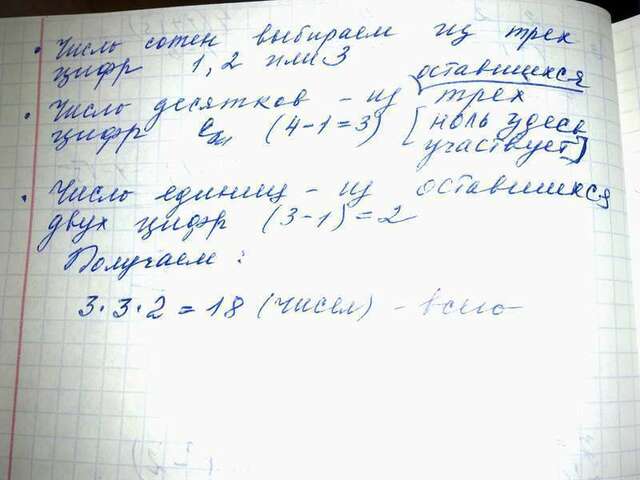 • Числь сотен выбираем из трех
цифр 1, 2 или 3
оставшихся
• Число десятков – из трех
цифр (4-1=3) [ноль здесь
участвует]
• Число единиц – из оставшихся
двух цифр (3-1)=2
Получаем:
3·3·2=18 (чисел) – всего